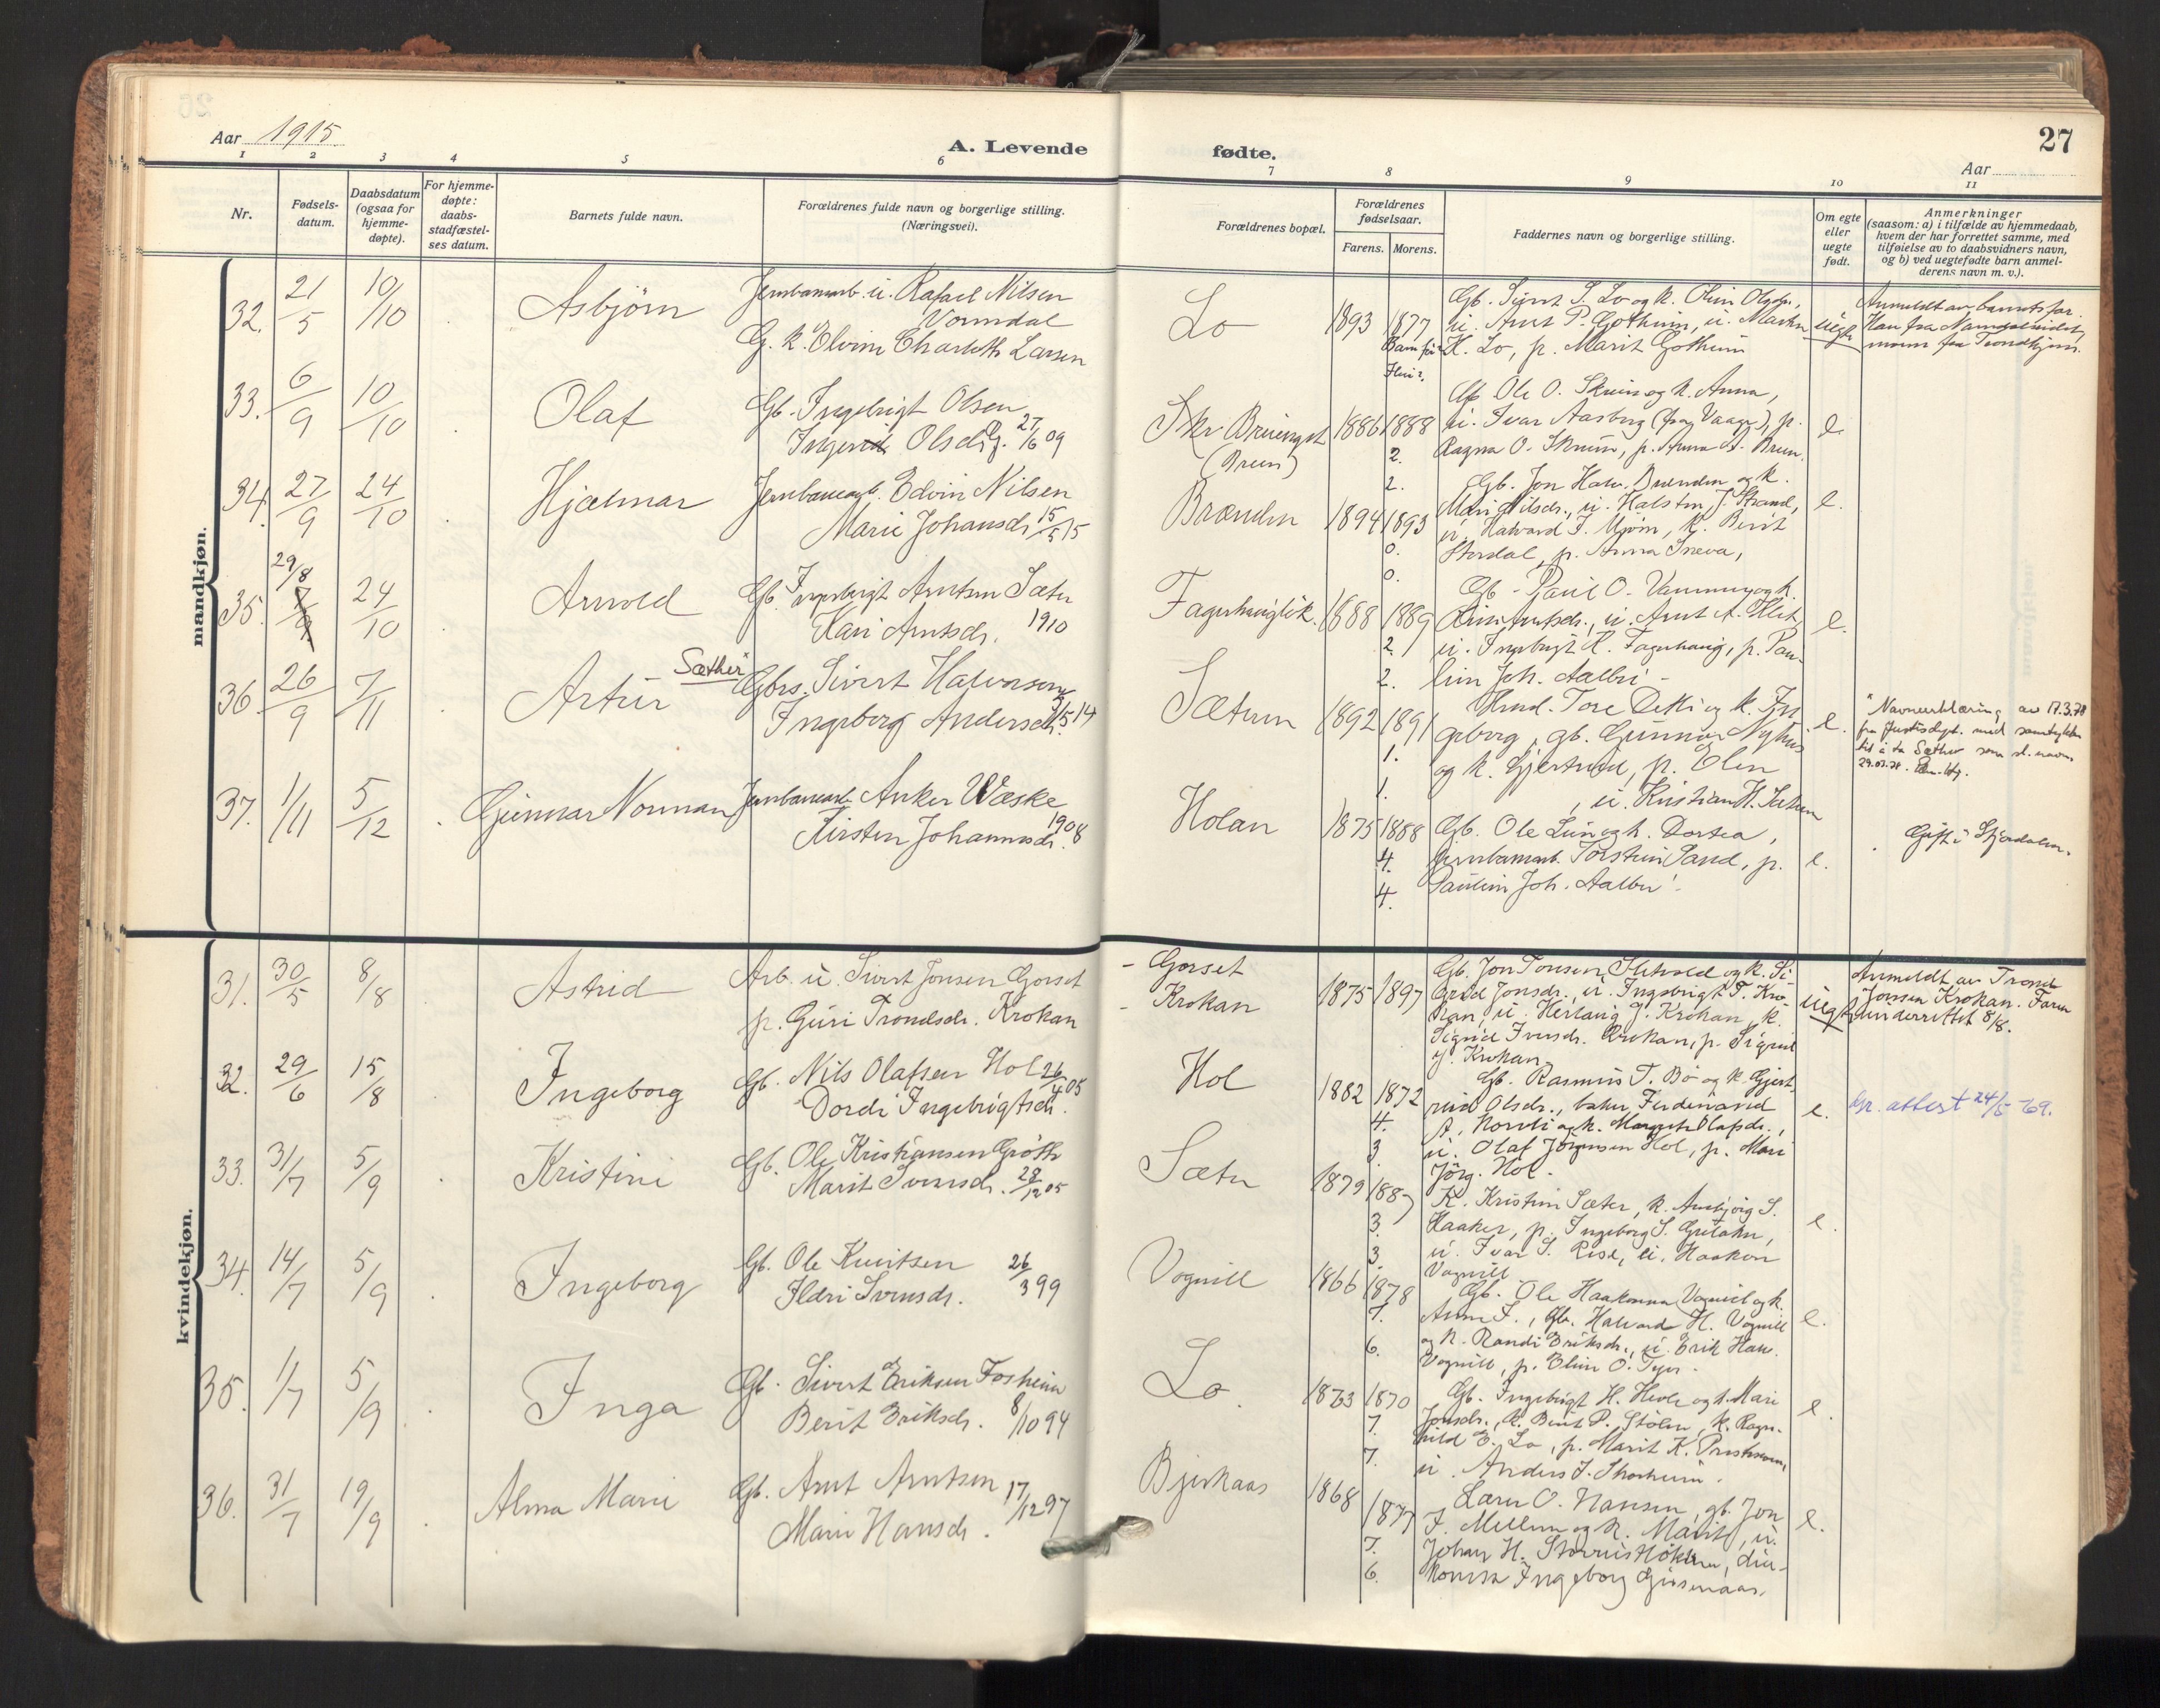 Aar 1915
A. Levende
fødte.
27
Aar
1 2 3 4 5 6 7 8 9 10 11
Nr.
Fødsels-
datum.
Daabsdatum
(ogsaa for
hjemme-
døpte).
For hjemme-
døpte:
daabs-
stadfæstel-
ses datum.
Barnets fulde navn.
Forældrenes fulde navn og borgerlige stilling.
(Næringsvei).
Forældrenes bopæl.
Forældrenes
fødselsaar.
Farens. Morens.
Faddernes navn og borgerlige stilling.
Om egte
eller
uegte
født.
Anmerkninger
(saasom: a) i tilfælde av hjemmedaab,
hvem der har forrettet samme, med
tilføielse av to daabsvidners navn,
og b) ved uegtefødte barn anmel-
derens navn m. v.).
mandkjøn.
32. 21/5 10/10 Asbjørn
Jernbanearb. u. Rafael Nilsen
Vormdal
G. k. Olvine Charloth Larsen
Lo 1893 1877
Gb. Sivert S. Lo og k. Olin Olsdr.,
u. Arnt P. Gotheim, u. Martin
K. Lo, p. Marit Gotheim
uegte
Anmeldt av barnets far.
Han fra Namdalseidet,
moren fra Trondhjem.
33. 6/9 10/10 Olaf
Gb. Ingebrigt Olsen
Olsdtr. 27/6 09
(Breen)
1886 1888
2.
2.
Ole O. Skreen og k. Anna,
u. Ivar Aasberg (fra Vaage), p.
Ragna O. Skreen, p. Anna A. Breen.
e.
34. 27/9 24/10 Hjælmar
Jernbanearb. Edvin Nilsen
Marie Johansdr. 15/5 15
Brænden 1894 1893
0.
0.
Gb. Jon Halv. Brænden og k.
Mari Nilsdr., u. Halsten J. Strand,
u. Halvard J. Mjøen, k. Berit
Stordal, p. Anna Sneva,
e.
35. 29/8 24/10 Arnold
Gb. Ingebrigt Arntsen Sæter
Kari Arntsdr. 1910
Fagerhaugløk. 1888 1889
2.
2.
Gb. Paul O. Vammervog k.
Arntsdr., u. Arnt A.
u. Ingebrigt K. Fagerhaug, p. Pau-
line Joh. Aalbu
e.
36. 26/9 7/11 Artur Sæther*
Gbrs. Sivert Halvorsen
Ingeborg Andersdr. 3/5 14
Sætren 1892 1891
1.
1.
Tore Dekki og k. Ing
geborg, gb. Gunnar Nyhus
og k. Gjertrud, p. Olea
, u. Kristian H. Sætren
e.
* Navneerklæring av 17.3.78
fra Justisdept. med samtykke
til å ta Sæther som sl.navn.
37. 1/11 5/12 Gunnar Norman
Jernbanearb. Anker Wæske
Kirsten Johannesdr. 1908
Holan 1875 1888
4.
4.
Gb. Ole Lien og k. Dortea,
Jernbanearb. Torstein Sand, p.
Paulin Joh. Aalbu
e.
Gift i Stjørdalen.
kvindekjøn.
31. 30/5 8/8 Astrid
Arb. u. Sivert Jonsen Gorset
p. Guri Trondsdr. Krokan
- Gorset
- Krokan
1875 1897
Gb. Jon Tonsen Sletvold og k. Si-
grid Jonsdr., u. Ingebrigt T. Kro-
kan, u. Herlaug J. Krokan, k.
Sigrid Iversdr. Krokan, p. Sigrid
J. Krokan
uegte
Anmeldt av Trond
Jonsen Krokan. Faren
underrettet 8/8.
32. 29/6 15/8 Ingeborg
Gb. Nils Olafsen Hol 26/4 05
Dordi Ingebrigtsdr.
Hol 1882 1872
4.
3.
Gb. Rasmus T. Bø og k. Gjert-
rud Olsdr., baker Ferdinand
A. Norvli og k. Margrete Olafsdr.,
u. Olaf Jørgensen Hol, p. Mari
Jørg. Hol.
e.
attest 24/5 69.
33. 31/7 5/9 Kristine
Gb. Ole Kristiansen Grøtte
Marit Sivertsdr. 28/12 05
Sæter 1879 1887
3.
3.
K. Kristine Sæter, k. Ambjørg S.
Haaker, p. Ingeborg S. Gretaker,
u. Ivar S. Rise, u. Haakon
Vognill
e.
34. 14/7 5/9 Ingeborg
Gb. Ole Knutsen 26/3 99
Ildri Svensdr.
Vognill 1866 1878
7.
6.
Gb. Ole Haakonsen Vognill og k.
Anne I., gb. Halvard H. Vognill
og k. Randi Eriksdr., u. Erik Haak.
Vognill, p. Eline O.
e.
35. 1/7 5/9 Inga
Gb. Sivert Eriksen Fosheim
Berit Eriksdr. 8/10 94
Lo 1873 1870
7.
7.
Gb. Ingebrigt H. Hevle og k. Mari
Jonsdr., k. Berit P. Stølen, k. Ragn-
hild E. Lo, p. Marit K.
u. Anders I.
e.
36. 31/7 19/9 Alma Marie
Gb. Arnt Arntsen 17/12 97
Marie Hansdr.
Bjerkaas 1868 1877
7.
6.
Lærer O. Hansen, gb. Jon
J. Mellem og k. Marit, u.
Johan H. dia-
konisse Ingeborg
e.